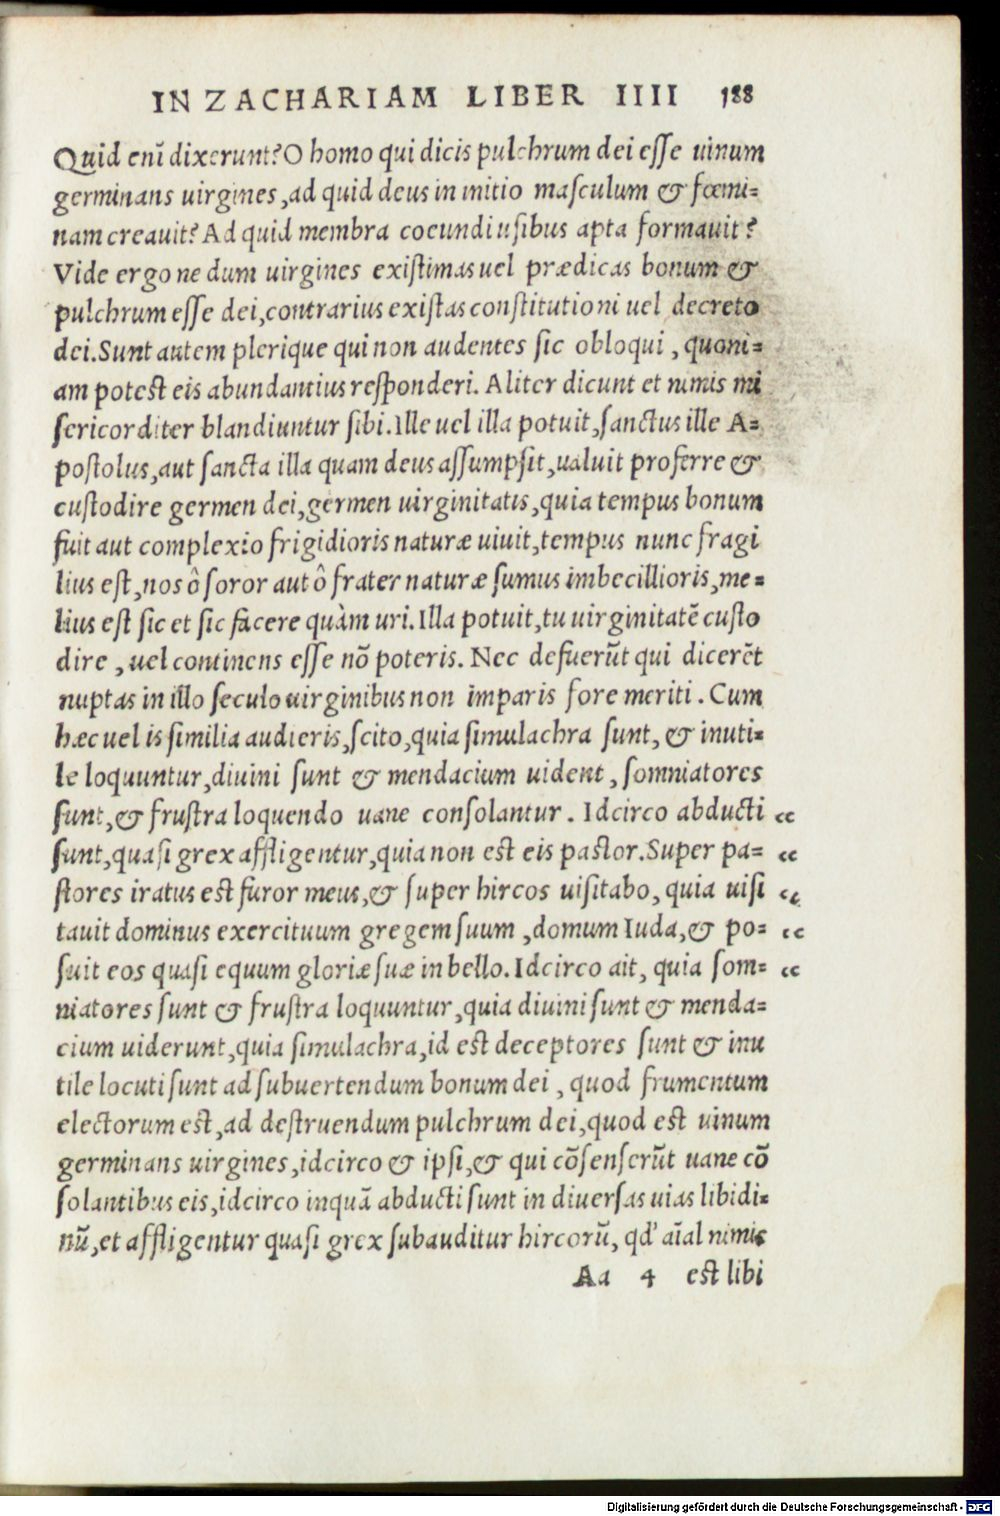 IN ZACHARIAM LIBER IIII 188
Quid enī dixerunt? O homo qui dicis pulchrum dei esse uinum
germinans uirgines, ad quid deus in initio masculum & fœmi=
nam creauit? Ad quid membra coeundi usibus apta formauit?
Vide ergo ne dum uirgines existimas uel prædicas bonum &
pulchrum esse dei, contrarius existas constitutioni uel decreto
dei. Sunt autem plerique qui non audentes sic obloqui, quoni=
am potest eis abundantius responderi. Aliter dicunt et nimis mi
sericorditer blandiuntur sibi. Ille uel illa potuit, sanctus ille A=
postolus, aut sancta illa quam deus assumpsit, ualuit proferre &
custodire germen dei, germen uirginitatis, quia tempus bonum
fuit aut complexio frigidioris naturæ uiuit, tempus nunc fragi
lius est, nos ô soror aut ô frater naturæ sumus imbecillioris, me=
lius est sic et sic facere quàm uri. Illa potuit, tu uirginitatē custo
dire, uel continens esse nō poteris. Nec defuerūt qui dicerēt
nuptas in illo seculo uirginibus non imparis fore meriti. Cum
hæc uel is similia audieris, scito, quia simulachra sunt, & inuti=
le loquuntur, diuini sunt & mendacium uident, somniatores
sunt, & frustra loquendo uane consolantur. Idcirco abducti "
sunt, quasi grex affligentur, quia non est eis pastor. Super pa= "
stores iratus est furor meus, & super hircos uisitabo, quia uisi "
tauit dominus exercituum gregem suum, domum Iuda, & po= "
suit eos quasi equum gloriæ suæ in bello. Idcirco ait, quia som= "
niatores sunt & frustra loquuntur, quia diuini sunt & menda=
cium uiderunt, quia simulachra, id est deceptores sunt & inu
tile locuti sunt ad subuertendum bonum dei, quod frumentum
electorum est, ad destruendum pulchrum dei, quod est uinum
germinans uirgines, idcirco & ipsi, & qui cōsenserūt uane cō
solantibus eis, idcirco inquā abducti sunt in diuersas uias libidi=
nū, et affligentur quasi grex subauditur hircorū, qd' aīal nimis
Aa 4 est libi
Digitalisierung gefördert durch die Deutsche Forschungsgemeinschaft - DFG